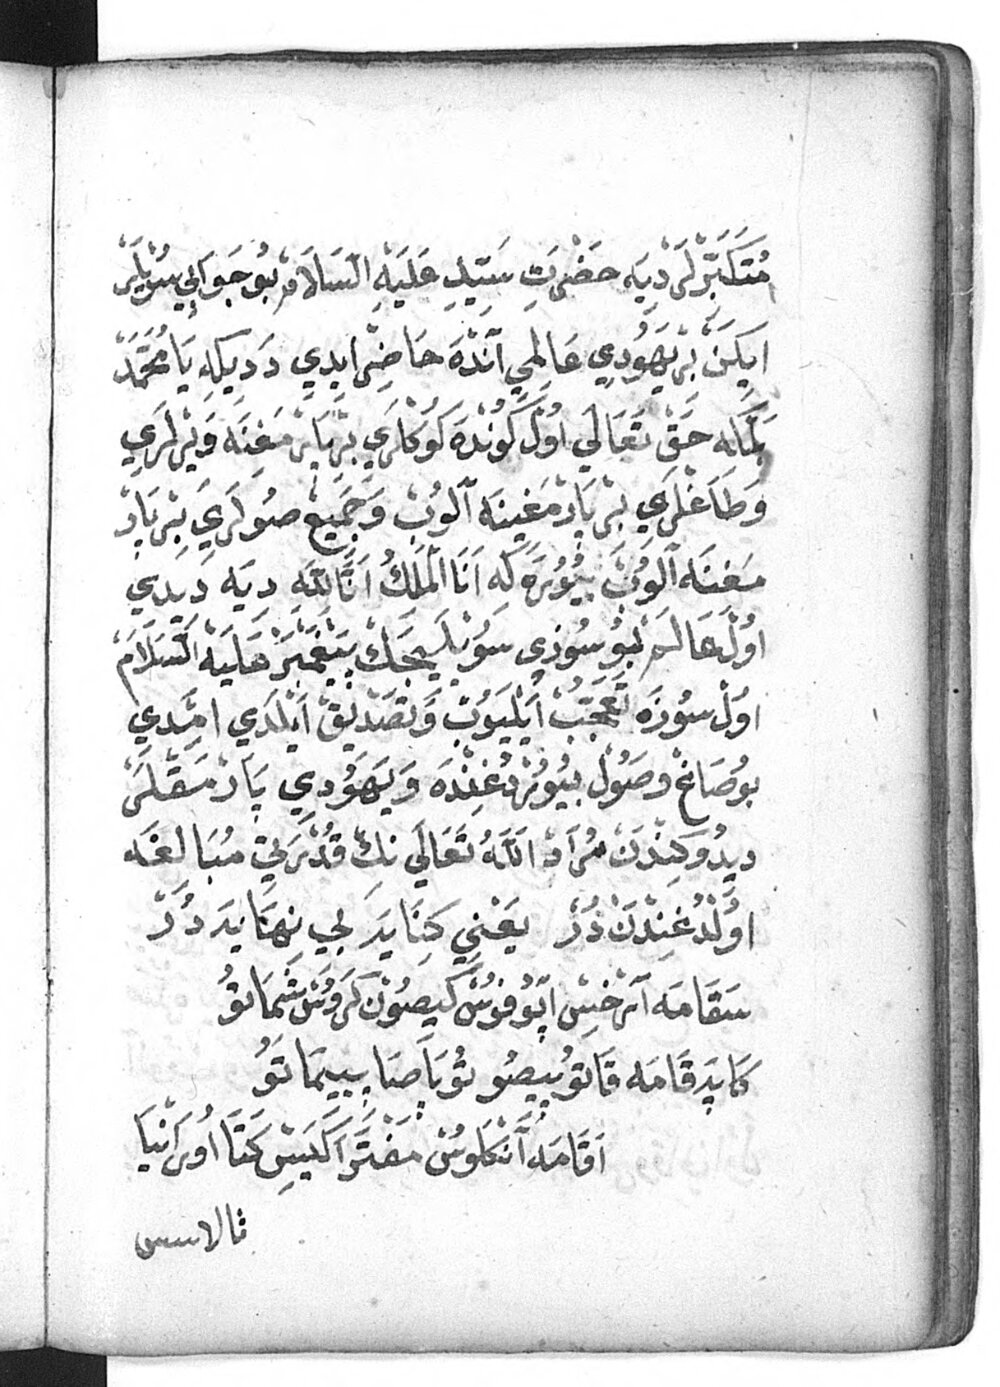 مُتَكَبِّرْلَرْ دِيَه حَضْرَتِ سَيِّدِ عَلَيْهِ السَّلَامْ بُو جَوَابِي سُوْيلَرْ
اِيكَنْ بِرْ يَهُودِي عَالِمِي آنْدَه حَاضِرْ اِيدِي دَدِيكِه يَا مُحَمَّدْ
حَقْ تَعَالَي اُولْ كُونْدَه كُوكْلَرِي بِرْ پَارْمَغِنَه وَيَرْلَرِي
وَطَاغْلَرِي بِرْ پَارْمَغِينَه آلُوبْ وَجَمِيعْ صُولَرِي بِرْ پَارْ
مَغِنَه آلُوبْ بُيُورَه كِه اَنَا الْمَلِكُ اَنَا اللّٰه دِيَه دِيدِي
اُولْ عَالِمْ بُو سُوزِي سُوْيلَيِجَكْ پَيْغَمْبَرْ عَلَيْهِ السَّلَامْ
اُولْ سُوزَه تَعَجُّبْ اَيْلَيُوبْ وَتَصْدِيقْ اَيْلَدِي اِمْدِي
بُو صَاغْ وَصُولْ بُيُورْدُغِنْدَه وَيَهُودِي پَارْمَقْلَرْ
دِيدُوكِنْدَنْ مُرَادْ اَللّٰهُ تَعَالَي نِكْ قُدْرَتِي مُبَالَغَه
اُولْدُغِنْدَنْ دُرْ يَعْنِي كِنَايَه بِي نِهَايَه دُرْ
سَقَامَه آرْخِسْ اَپُوفُوسْ كَيصُونْ كَرُوسْ شَمَاتُو
كَاپَدَقَامَه قَاتُوپِيصُو تُوپَاصَا پِيِيمَاتُو
اَقَامَه آنْكَلُوسْ مَفْتَرَا كَيَسْ كَتَا اُورَانِيَا
ثالاسس